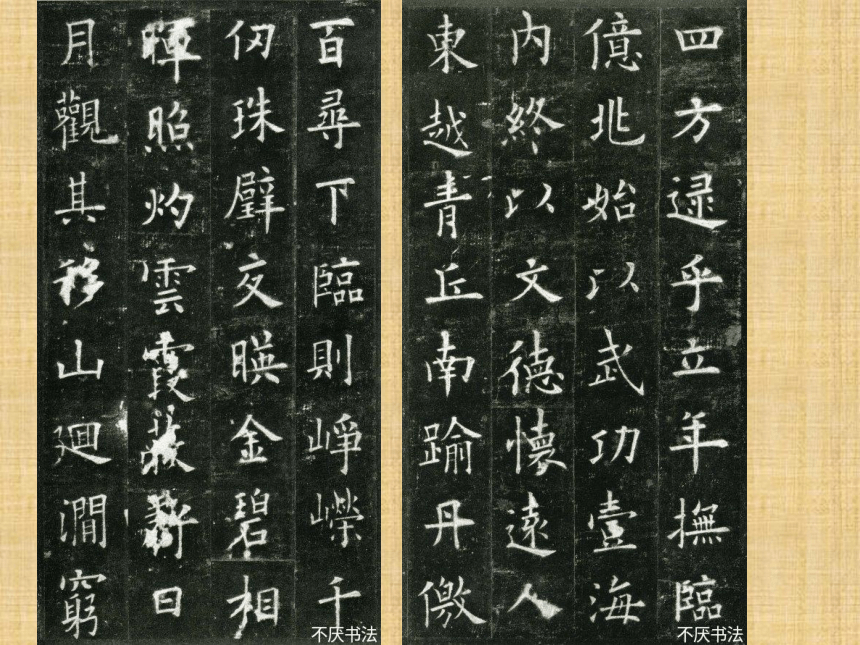 百尋下臨則崢嶸千
仞珠璧交暎金碧相
暉照灼雲霞蔽虧日
月觀其移山迴澗窮
不厌书法
四方逮乎立年撫臨
億兆始以武功壹海
内終以文德懷遠人
東越青丘南踰丹儌
不厌书法